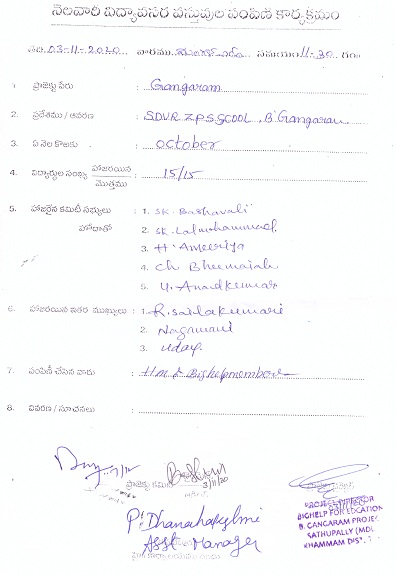 నెలవారి విద్యావసర వస్తువుల పంపిణి కార్యక్రమం
తేది.03-11-2020 వారము మంగళవారం సమయం11-30 గం
1. ప్రాజెక్టు పేరు : Gangaram
2. ప్రదేశము / ఆవరణ : S.D.V.R Z.P.S.SCOOL, B.Gangaram
3. ఏ నెల కొఱకు : october
4. విద్యార్థుల సంఖ్య హాజరయిన / మొత్తము : 15/15
5. హాజరైన కమిటీ సభ్యులు : 1. SK. Bashavali
హోదాతో 2. SK. Lalmohammad
3. H. Ameeriya
4. Ch Bheemaiah
5. U. Anandkumar
6. హాజరయిన ఇతర ముఖ్యులు : 1. R. sailakumari
2. Nagamani
3. Uday
7. పంపిణీ చేసిన వారు : H.M & Bighelp members
8. వివరణ / సూచనలు :
ప్రాజెక్టు కమిటీ
3/11/20
P. Dhanalakshmi
Asst Manager
PROJECT DIRECTOR
BIGHELP FOR EDUCATION
B. GANGARAM PROJEC
SATHUPALLY (MDL
KHAMMAM DIST. T